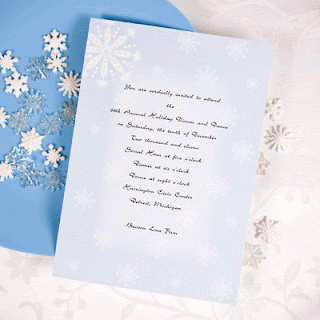 You are cordially invited to attend
the
Annual Holiday Dinner and Dance
on Saturday, the tenth of December
Two thousand and eleven
Social Hour at five o'clock
Dinner at six o'clock
Dance at eight o'clock
Harrington Civic Center
Detroit, Michigan
Benson Law Firm